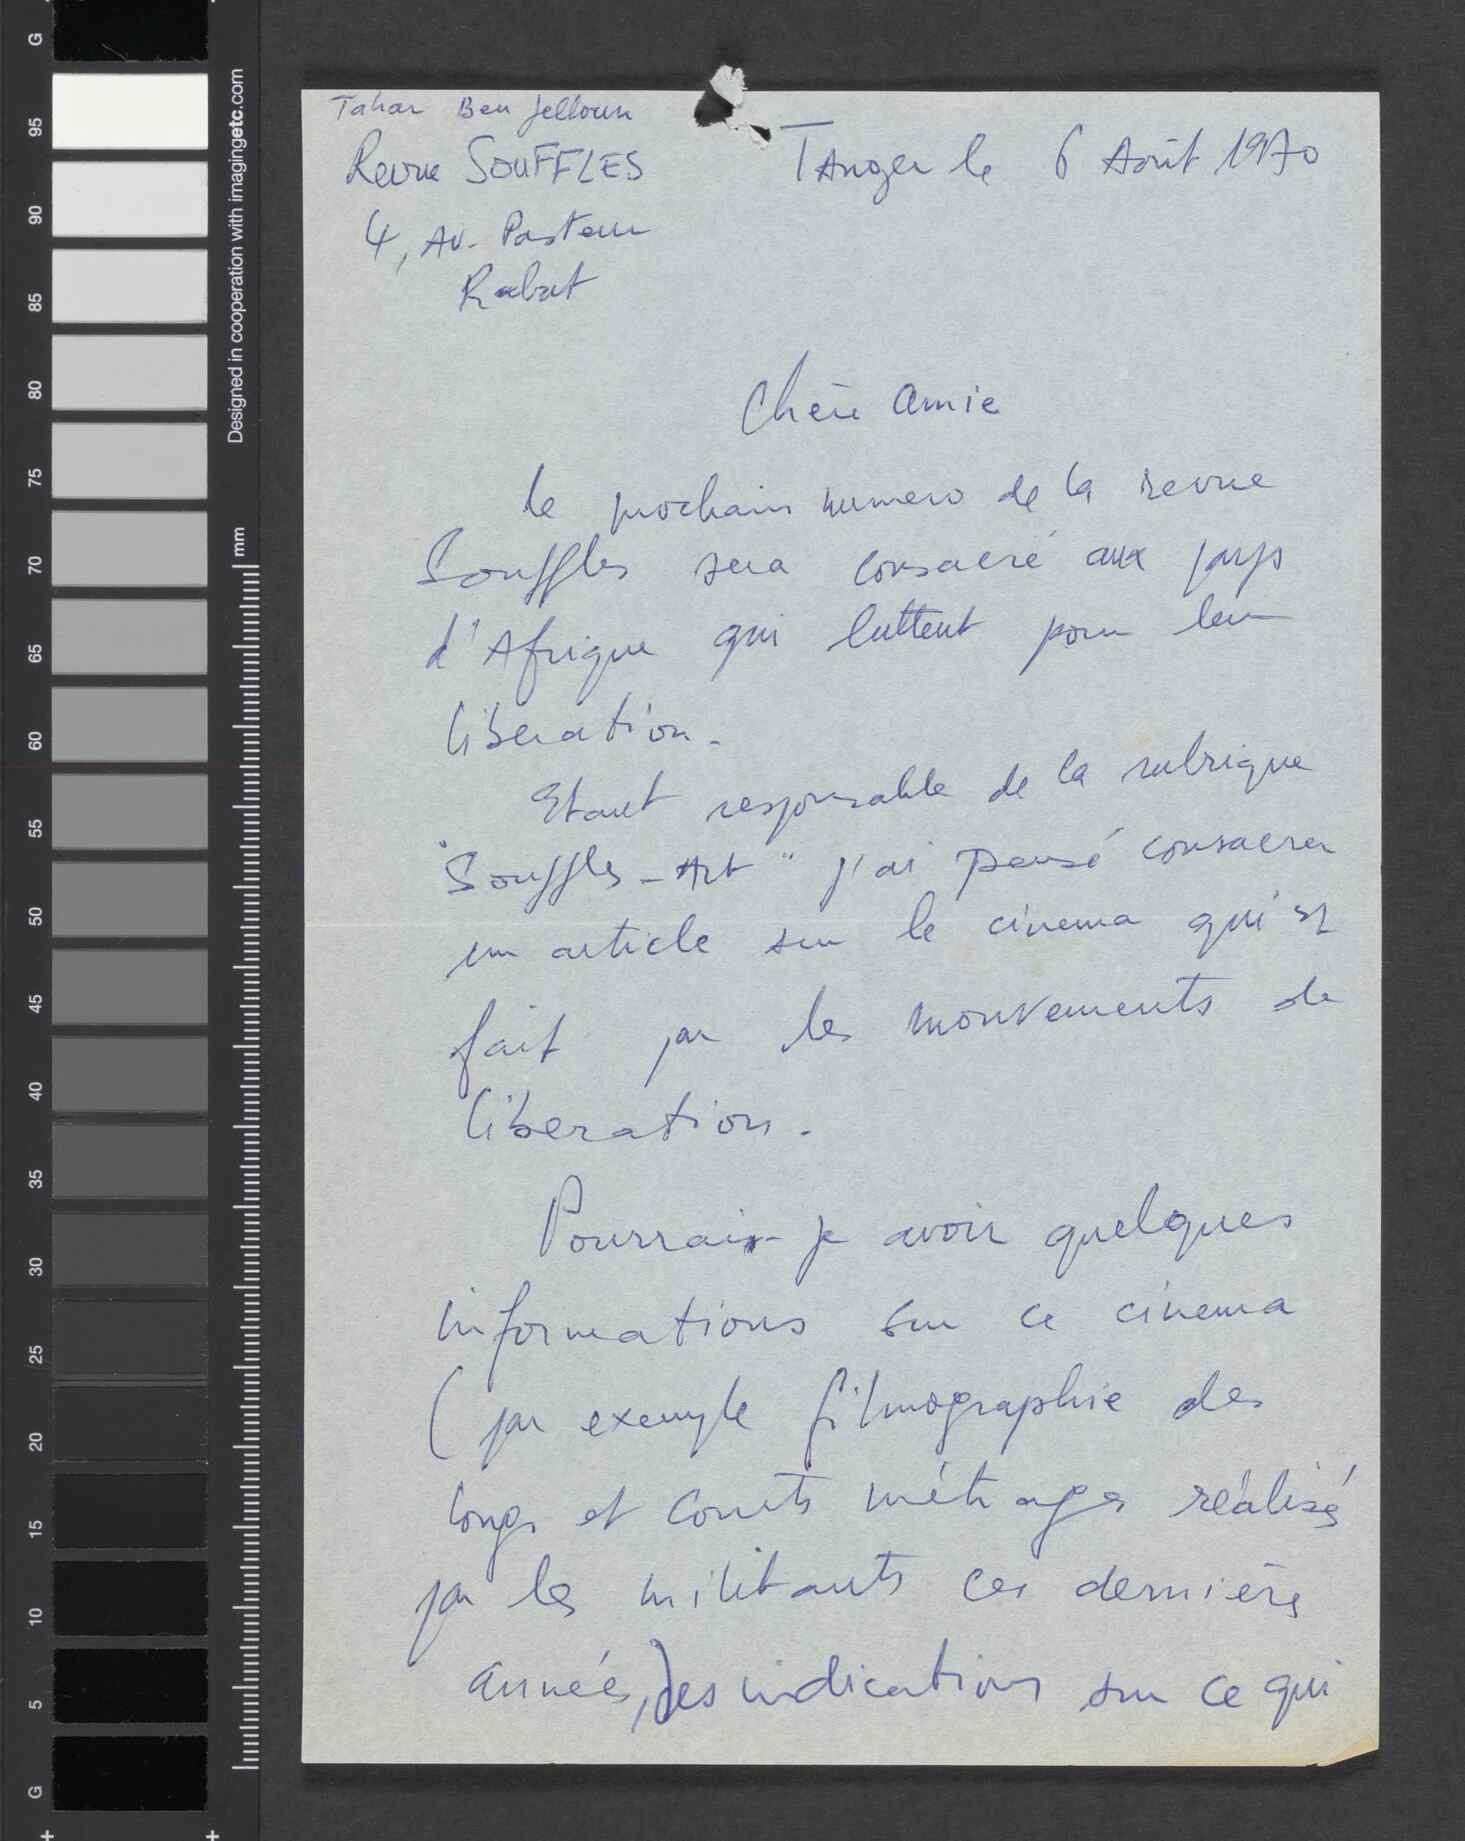 Tahar Ben Jelloun
Revue SOUFFLES
4, Av. Pasteur
Rabat
Tanger le 6 Août 1970
Chère amie
le prochain numero de la revue
Souffles sera consacré aux pays
d'Afrique qui luttent pour leur
liberation.
Etant responsable de la rubrique
"Souffles-Art" j'ai pensé consacrer
un article sur le cinema qui est
fait par les mouvements de
liberation.
Pourrais-je avoir quelques
informations sur ce cinema
(par exemple filmographie des
longs et courts métrages réalisés
par les militants ces dernières
années,) des indications sur ce qui
G
95
90
85
80
75
70
65
60
55
50
45
40
35
30
25
20
15
10
5
G
Designed in cooperation with imagingetc.com
mm